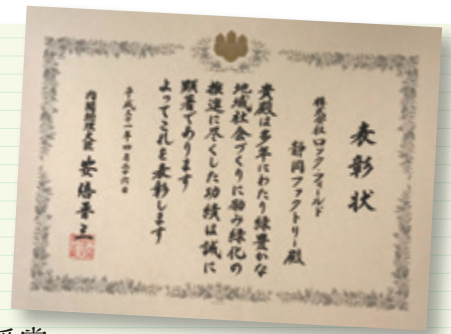 表彰状
株式会社ロック・フィールド
静岡ファクトリー殿
貴殿は多年にわたり緑豊かな
地域社会づくりに励み緑化の
推進に尽くした功績は誠に
顕著であります
よってこれを表彰します
内閣総理大臣 安倍晋三
受賞